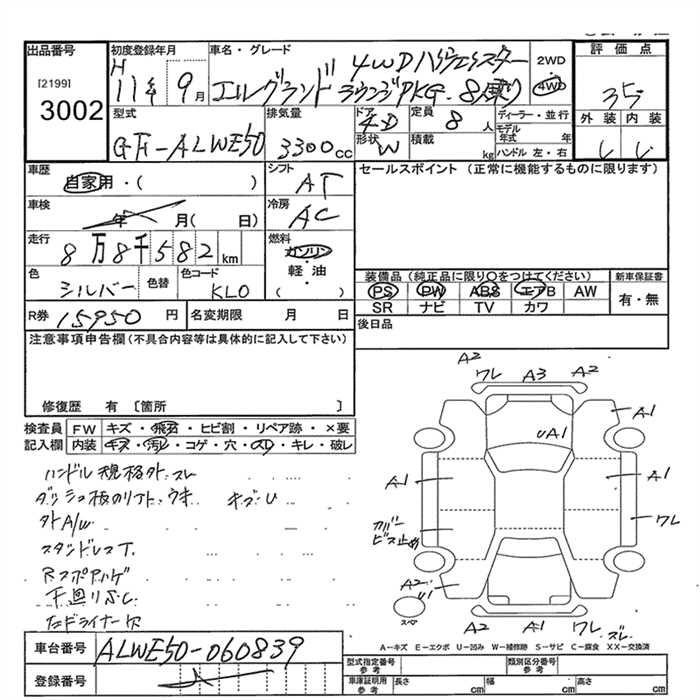 出品番号 初度登録年月 車名・グレード 評価点
[2199]
3002
H 11年 9月
エルグランド 4WDハイウェイスター
ラウンジPKG. 8(乗り)
2WD
4WD
35
外装 内装
型式 排気量 ドア 定員 ディーラー・並行
GF-ALWE50 3300cc 4D 8人
形状 積載 モデル年式 年
W kg ハンドル 左・右
車歴 シフト セールスポイント (正常に機能するものに限ります)
自家用・( ) AT
車検 冷房
年 月( 日) AC
走行 燃料
8万8千582km ガソリン
軽油
( )
色 色替 色コード
シルバー KL0
装備品(純正品に限り○をつけてください) 新車保証書
PS PW ABS エアB AW 有・無
SR ナビ TV カワ
R券 15950円 名変期限 月 日 後日品
注意事項申告欄(不具合内容等は具体的に記入して下さい)
修復歴 有 [箇所 ]
検査員 FW キズ・飛石・ヒビ割・リペア跡・×要
記入欄 内装 キズ・汚レ・コゲ・穴・スレ・キレ・破レ
ハンドル規格外.スレ
ダッシュ板のリフト.ウキ キズU
外A/W
スタンドレスT.
下廻りサビ
右ドライナー欠
A2 ワレ A3 A2
A1
UA1
A1 A1
カバー ビス止め ワレ
A2 U1
スペア
A2 A1 ワレ スレ
A－キズ E－エクボ U－凹み W－補修跡 S－サビ C－腐食 XX－交換済
車台番号 ALWE50-060839
登録番号
型式指定番号 参考 類別区分番号 参考
車庫証明用 参考 長さ cm 幅 cm 高さ cm